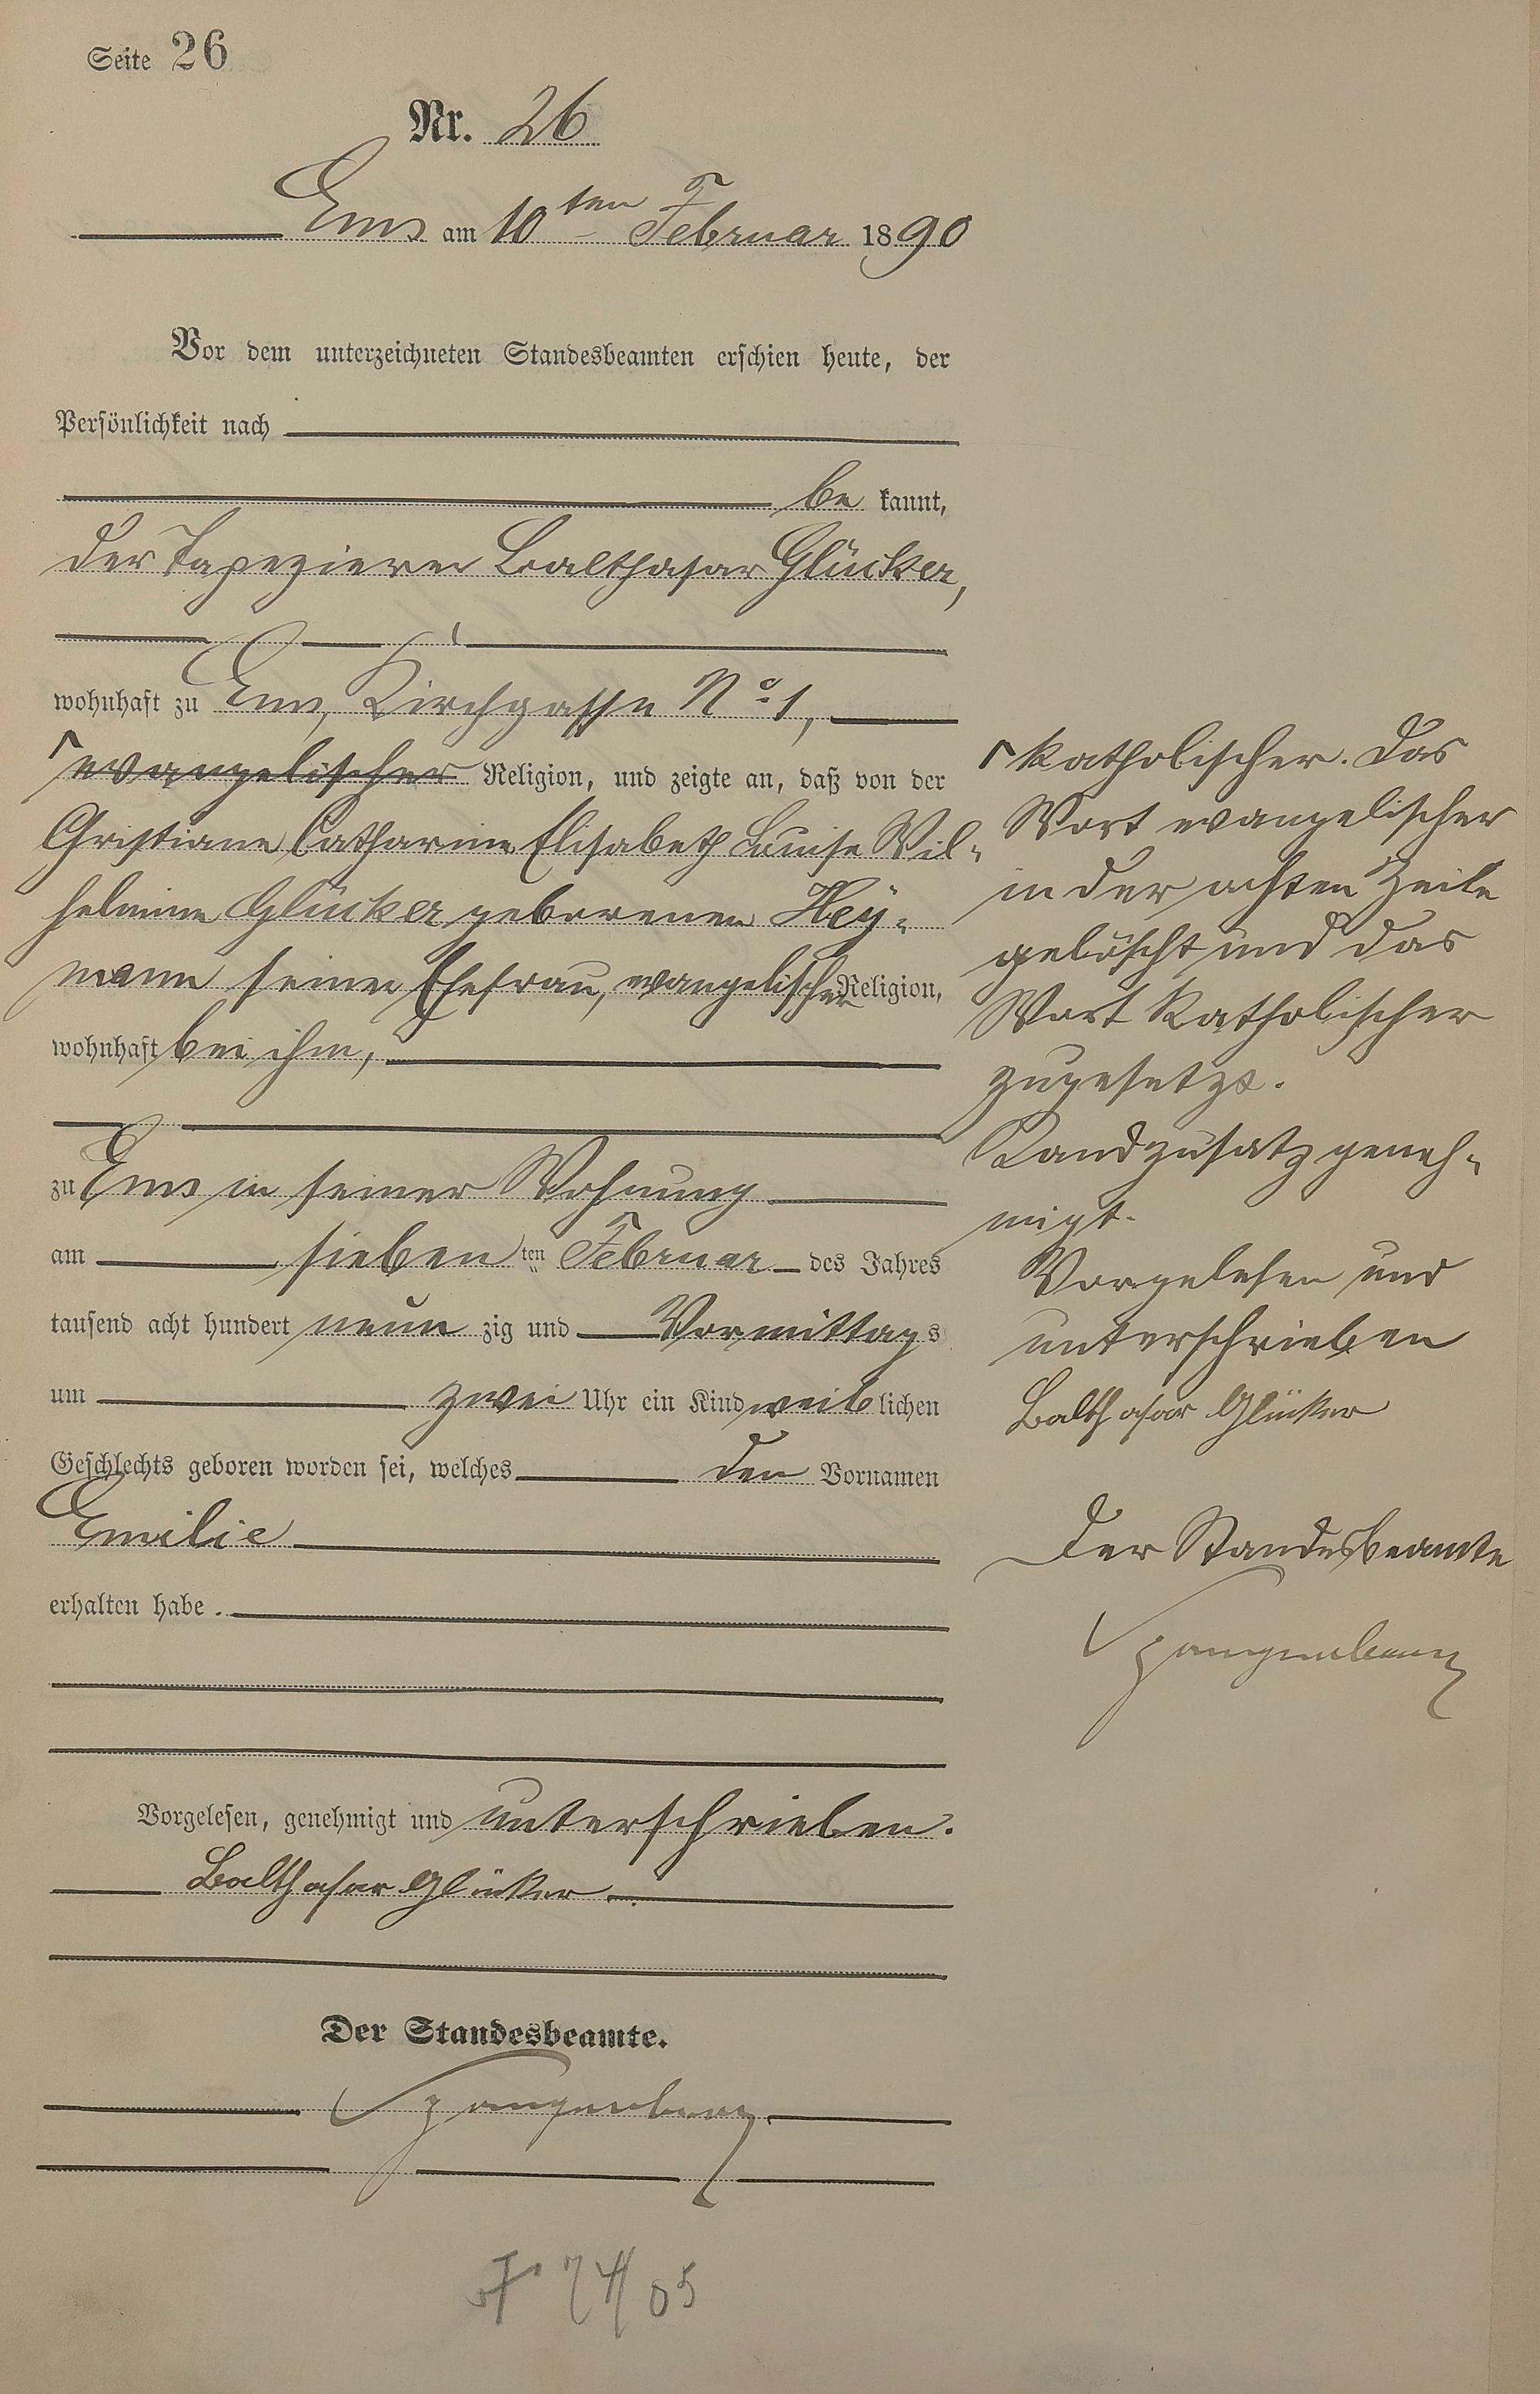 Seite 26
Nr. 26
Ems am 10ten Februar 1890
Vor dem unterzeichneten Standesbeamten erschien heute, der
Persönlichkeit nach
be kannt,
der Tapezierer Balthasar Glücker,
wohnhaft zu Ems, Kirchgasse No 1,
evangelischer Religion, und zeigte an, daß von der
Christiane Catharine Elisabeth Louise Wil-
helmine Glücker geborenen Hey-
mann seiner Ehefrau, evangelischer Religion,
wohnhaft bei ihm,
zu Ems in seiner Wohnung
am sieben ten Februar des Jahres
tausend acht hundert neun zig und Vormittags
um zwei Uhr ein Kind weiblichen
Geschlechts geboren worden sei, welches den Vornamen
Emilie
erhalten habe.
Vorgelesen, genehmigt und unterschrieben.
Balthasar Glücker
Der Standesbeamte.
Spangenberg
┌ Katholischer. Das
Wort evangelischer
in der achten Zeile
gelöscht und das
Wort Katholischer
zugesetzt.
Randzusatz geneh-
migt.
Vorgelesen und
unterschrieben
Balthasar Glücker
Der Standesbeamte
Spangenberg
74/05